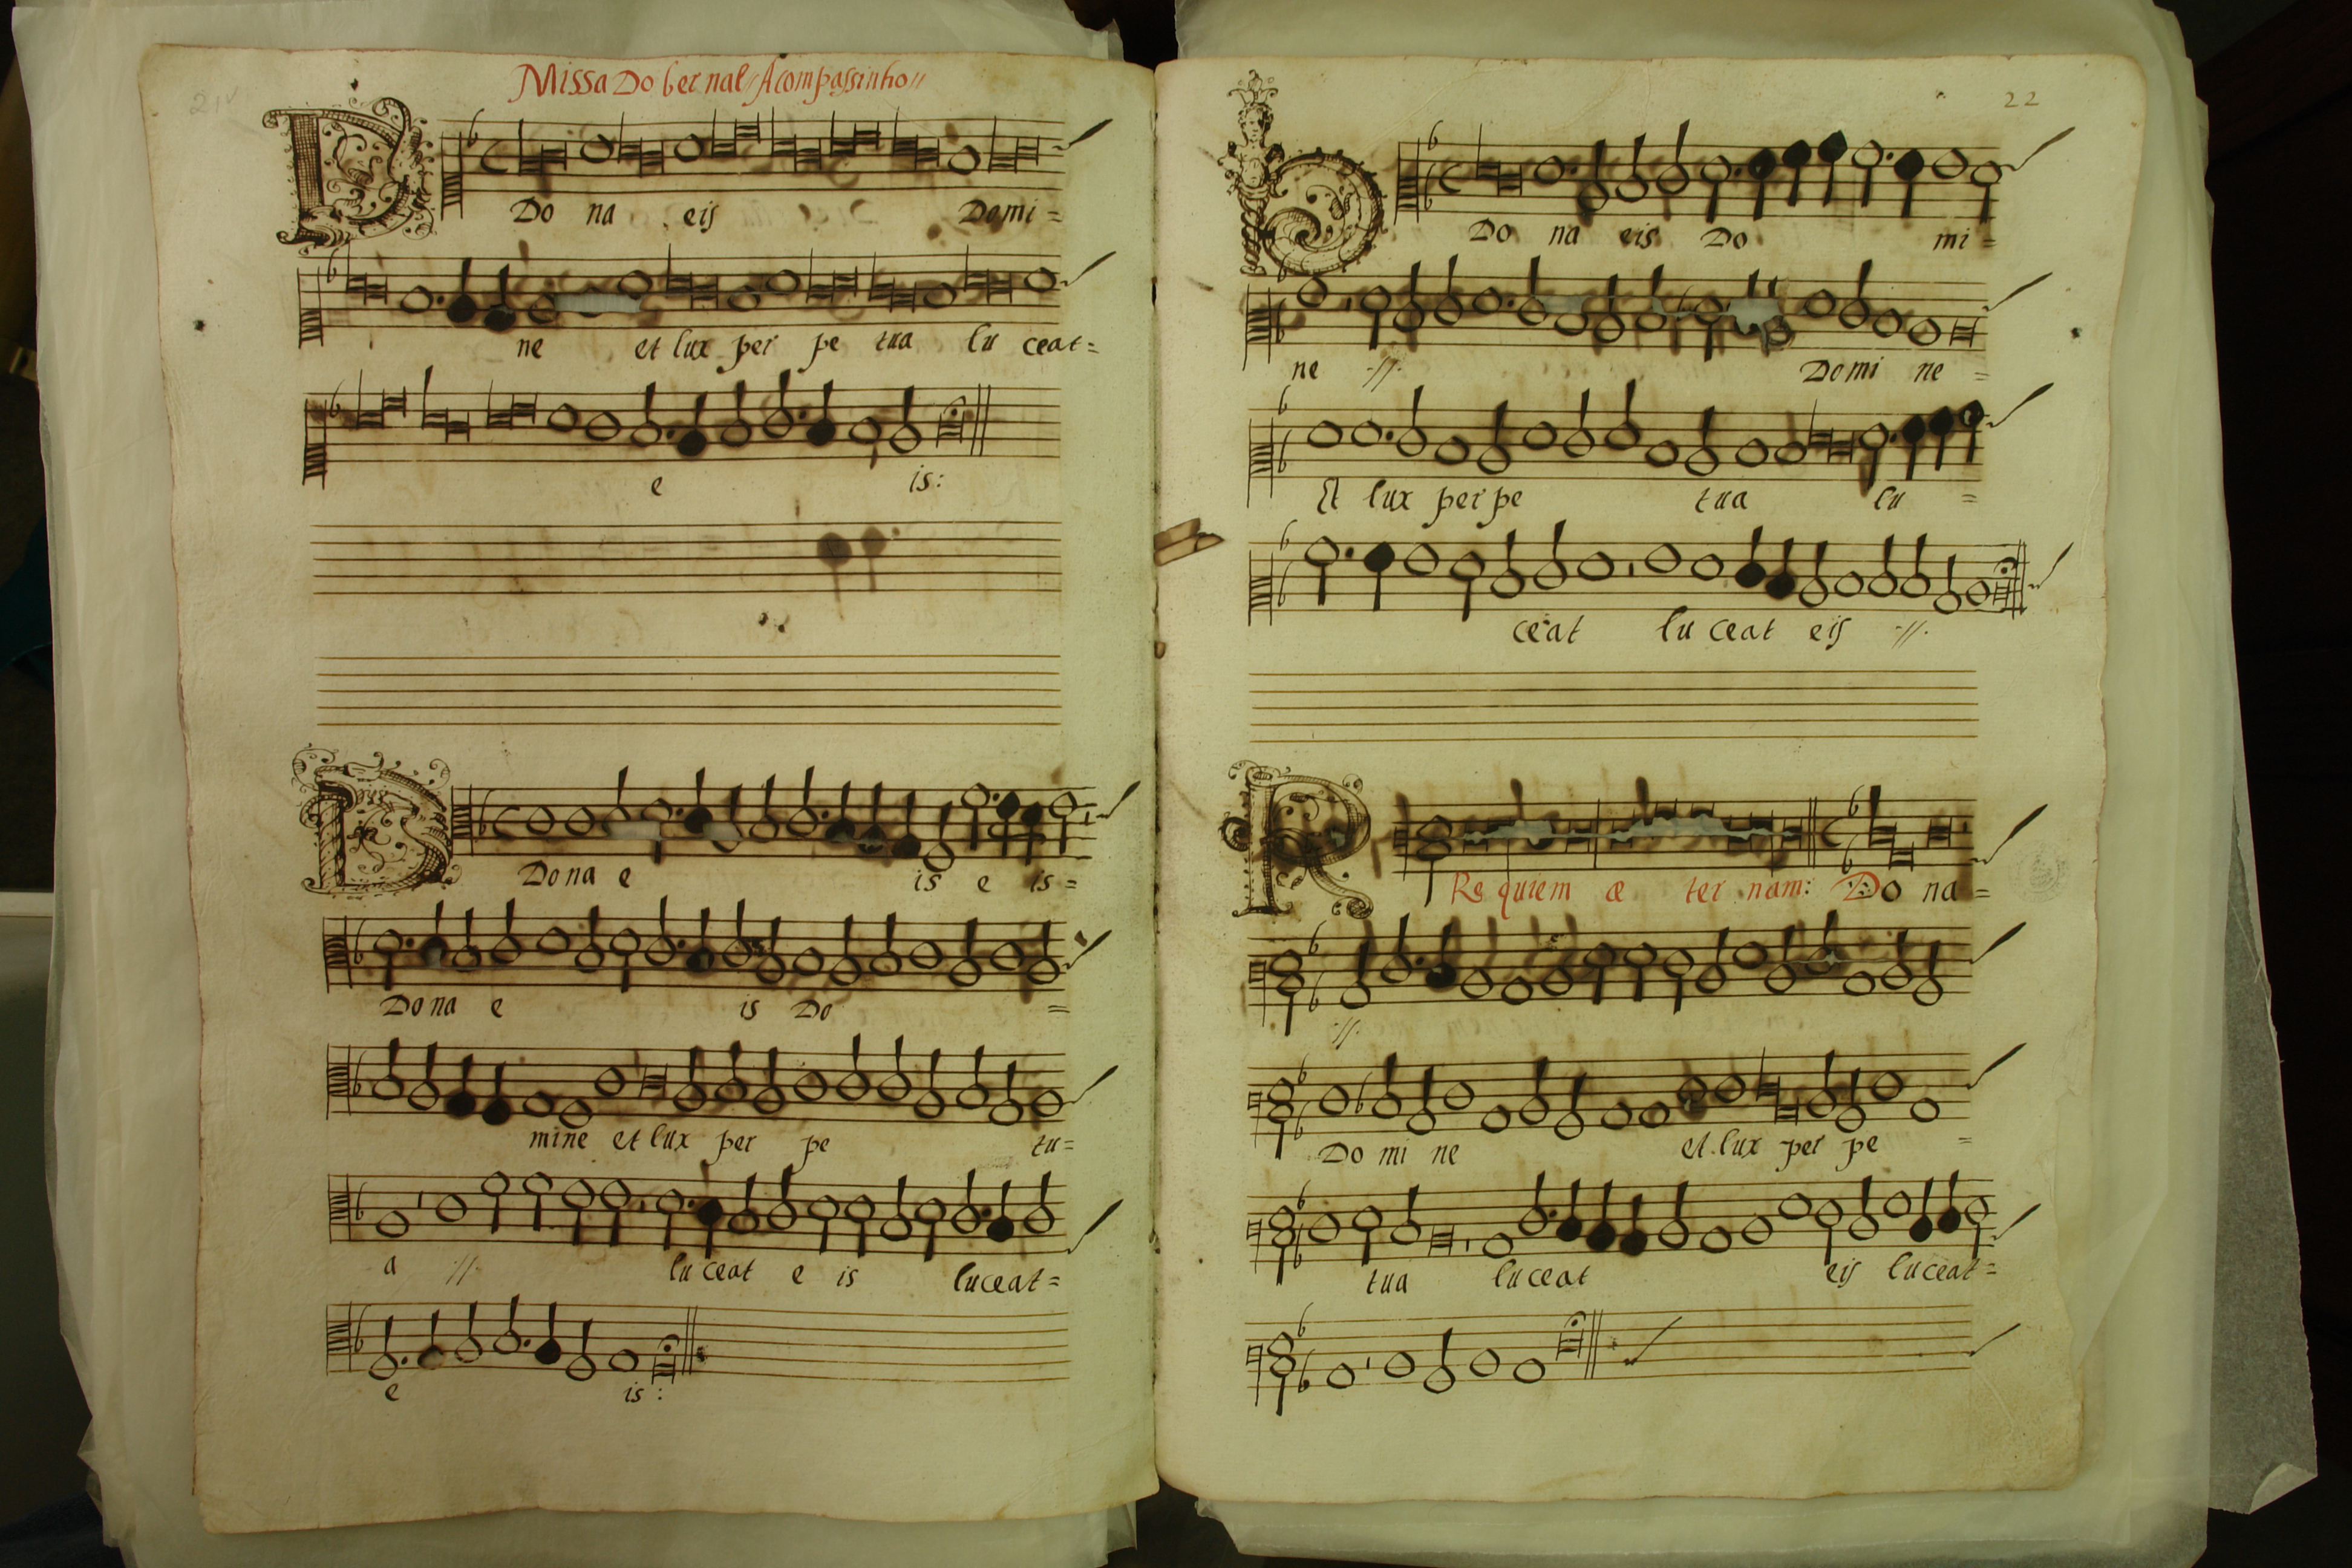 21v
Missa Do bernal // A compassinho //
Do na eis Domi =
ne et lux per pe tua lu ceat =
e is:
Do na e is e is =
Do na e is Do =
mine et lux per pe tu =
a // lu ceat e is luceat =
e is:
22
Do na eis Do mi =
ne // Domi ne =
Et lux per pe tua lu =
ceat lu ceat eis //
R
Re quiem æ ter nam: Do na =
//
Do mi ne et lux per pe =
tua lu ceat eis luceat =